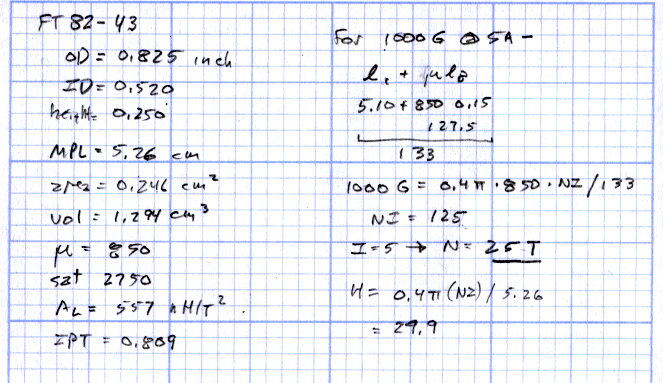 FT 82-43
OD = 0.825 inch
ID = 0.520
height = 0.250
MPL = 5.26 cm
area = 0.246 cm²
vol = 1.294 cm³
μ = 850
sat 2750
A_L = 557 nH/T²
IPT = 0.809
For 1000 G @ 5A -
l_i + μ l_g
5.10 + 850 0.15
127.5
133
1000 G = 0.4π · 850 · NI / 133
NI = 125
I = 5 → N = 25 T
H = 0.4π (NI) / 5.26
= 29.9